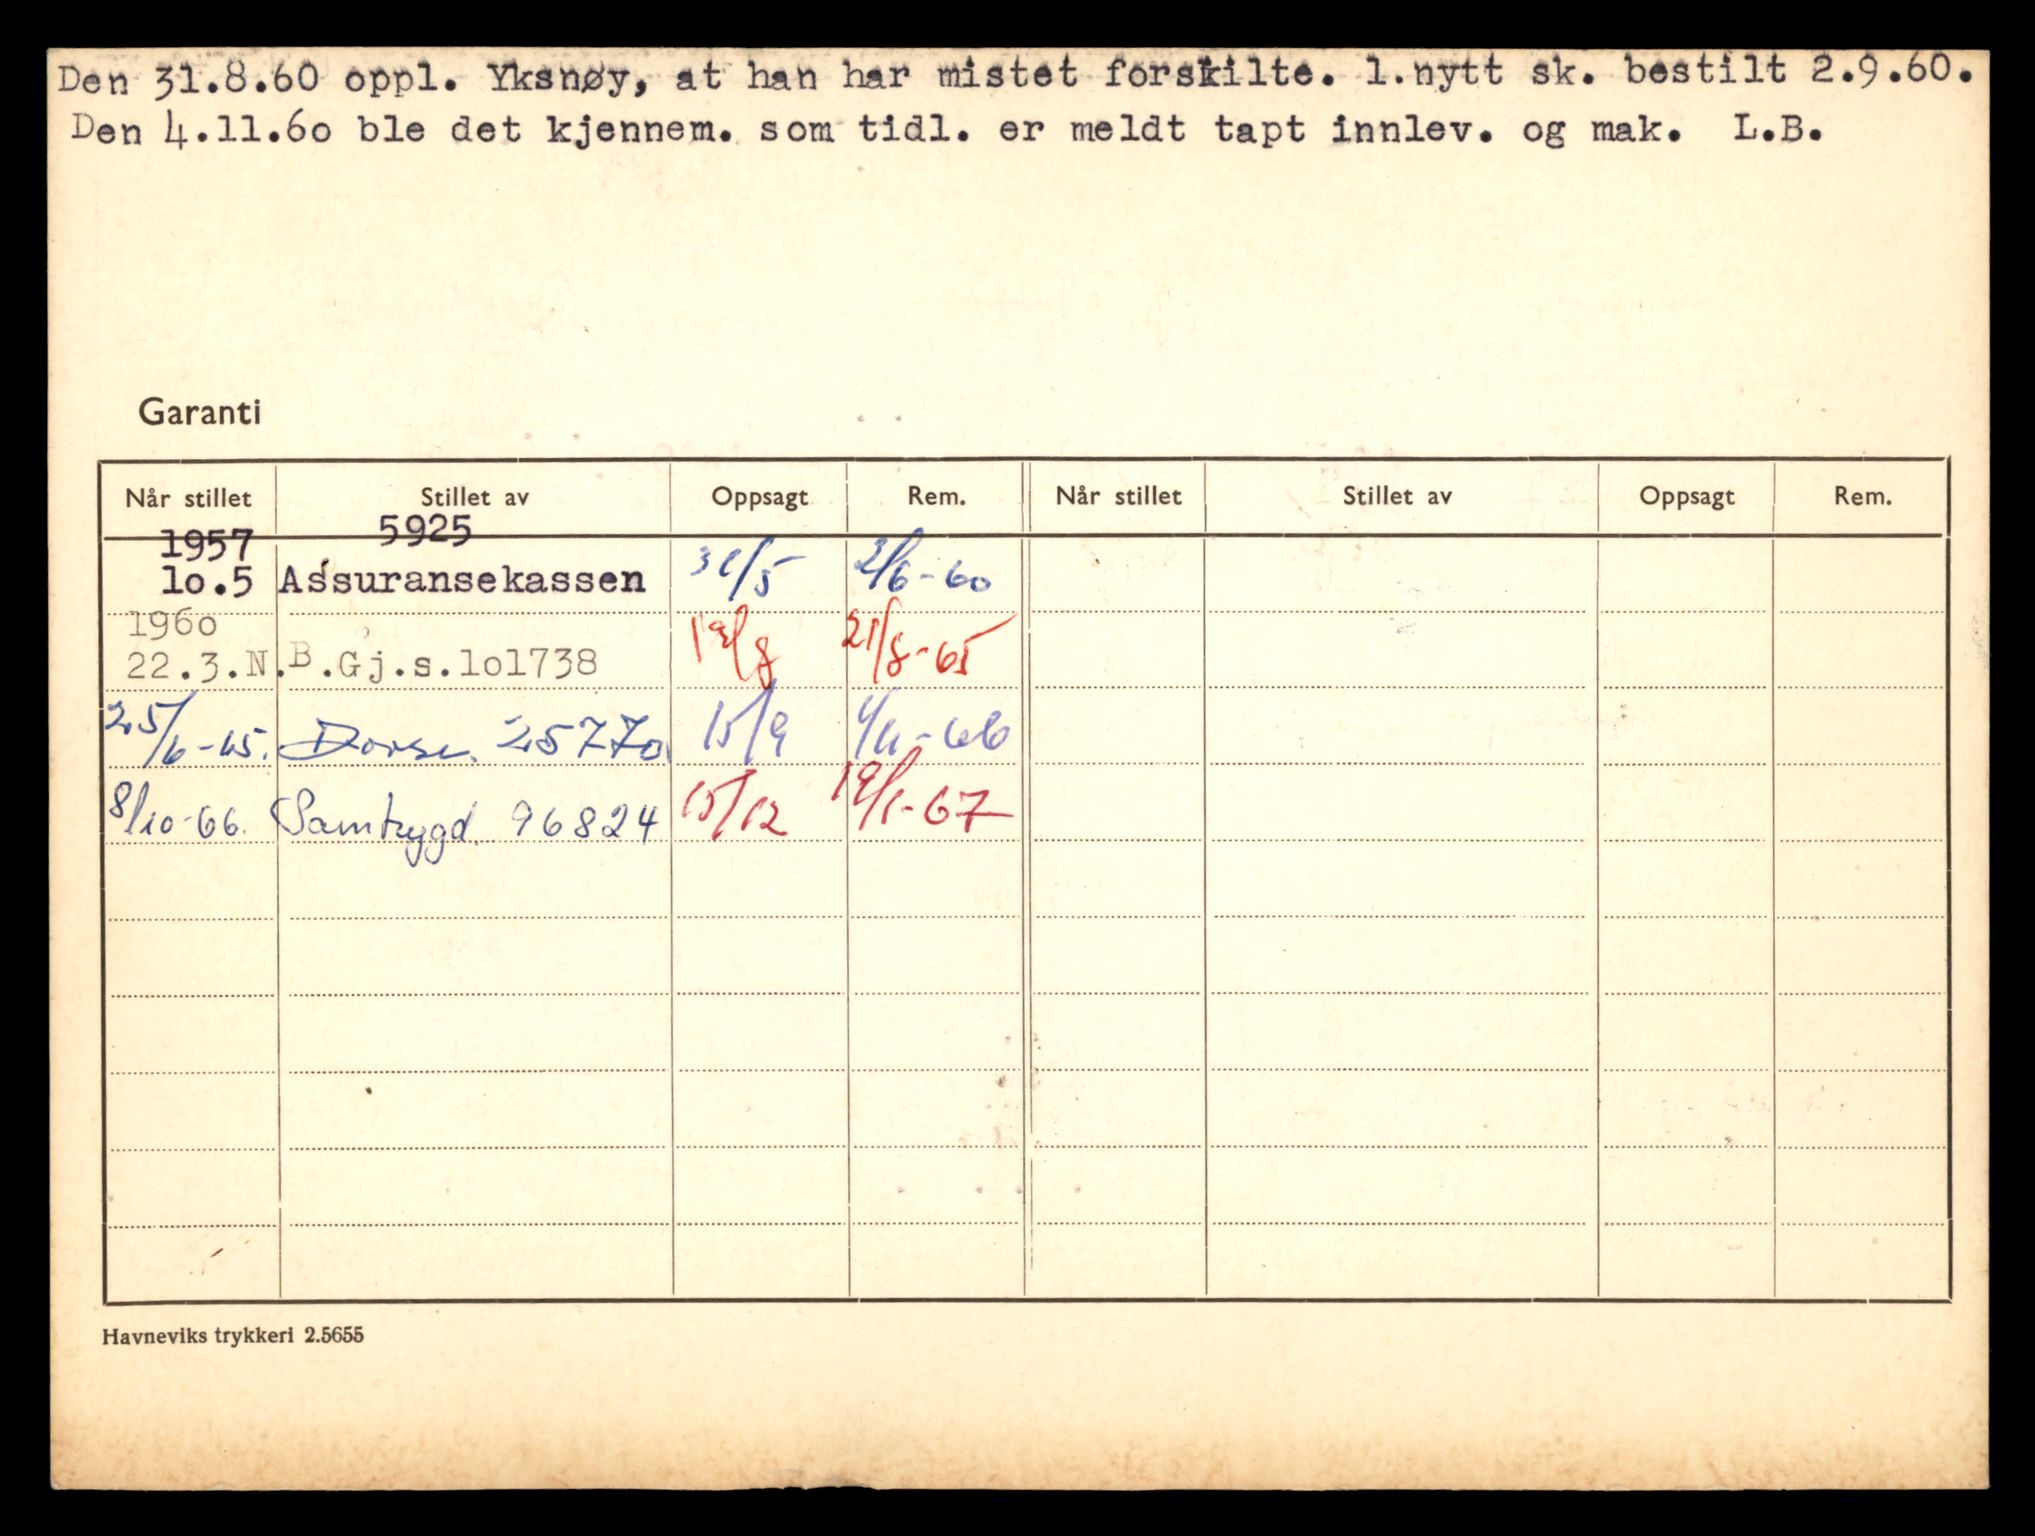 Den 31.8.60 oppl. Yksnøy, at han har mistet forskilte. 1.nytt sk. bestilt 2.9.60.
Den 4.11.60 ble det kjennem. som tidl. er meldt tapt innlev. og mak. L.B.
Garanti
Når stillet Stillet av Oppsagt Rem. Når stillet Stillet av Oppsagt Rem.
1957 5925
lo.5 Assuransekassen 31/5 2/6-60
196o
22.3.N.B.Gj.s.lol738 19/8 21/8-65
25/6-65. 25770 15/9 4/11-66
8/10-66. Samtrygd. 96824 15/12 19/1-67
Havneviks trykkeri 2.5655